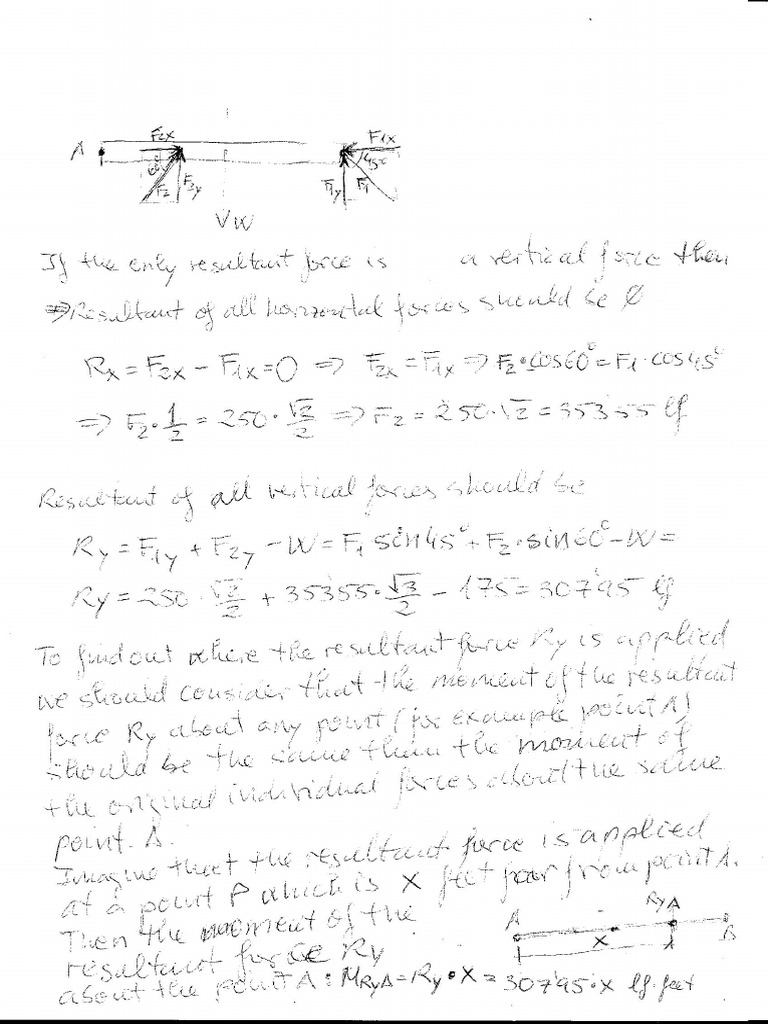 A F2x F1x
60° F2 F2y 45° F1y F1
W
If the only resultant force is a vertical force then
⇒ Resultant of all horizontal forces should be 0
Rx = F2x − F1x = 0 ⇒ F2x = F1x ⇒ F2·cos60° = F1·cos45°
⇒ F2·1/2 = 250·√2/2 ⇒ F2 = 250·√2 = 353'55 lf
Resultant of all vertical forces should be
Ry = F1y + F2y − W = F1 sin45° + F2·sin60° − W =
Ry = 250·√2/2 + 353'55·√3/2 − 175 = 307'95 lf
To find out where the resultant force Ry is applied
we should consider that the moment of the resultant
force Ry about any point (for example point A)
should be the same than the moment of
the original individual forces about the same
point A.
Imagine that the resultant force is applied
at a point P which is X feet far from point A.
Then the moment of the
resultant force Ry
A X Ry B
about the point A: MRyA = Ry·X = 307'95·x lf·feet